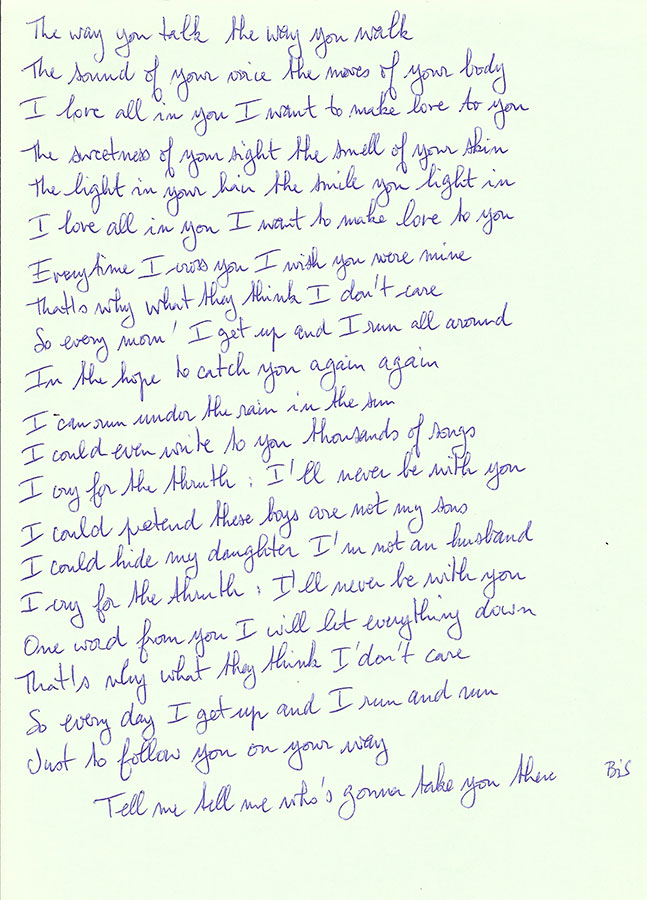 The way you talk the way you walk
The sound of your voice the moves of your body
I love all in you I want to make love to you
The sweetness of your sight the smell of your skin
The light in your hair the smile you light in
I love all in you I want to make love to you
Everytime I cross you I wish you were mine
That's why what they think I don't care
So every morn' I get up and I run all around
In the hope to catch you again again
I can run under the rain in the sun
I could even write to you thousands of songs
I cry for the thruth : I'll never be with you
I could pretend these boys are not my sons
I could hide my daughter I'm not an husband
I cry for the thruth : I'll never be with you
One word from you I will let everything down
That's why what they think I don't care
So every day I get up and I run and run
Just to follow you on your way
Tell me tell me who's gonna take you there Bis